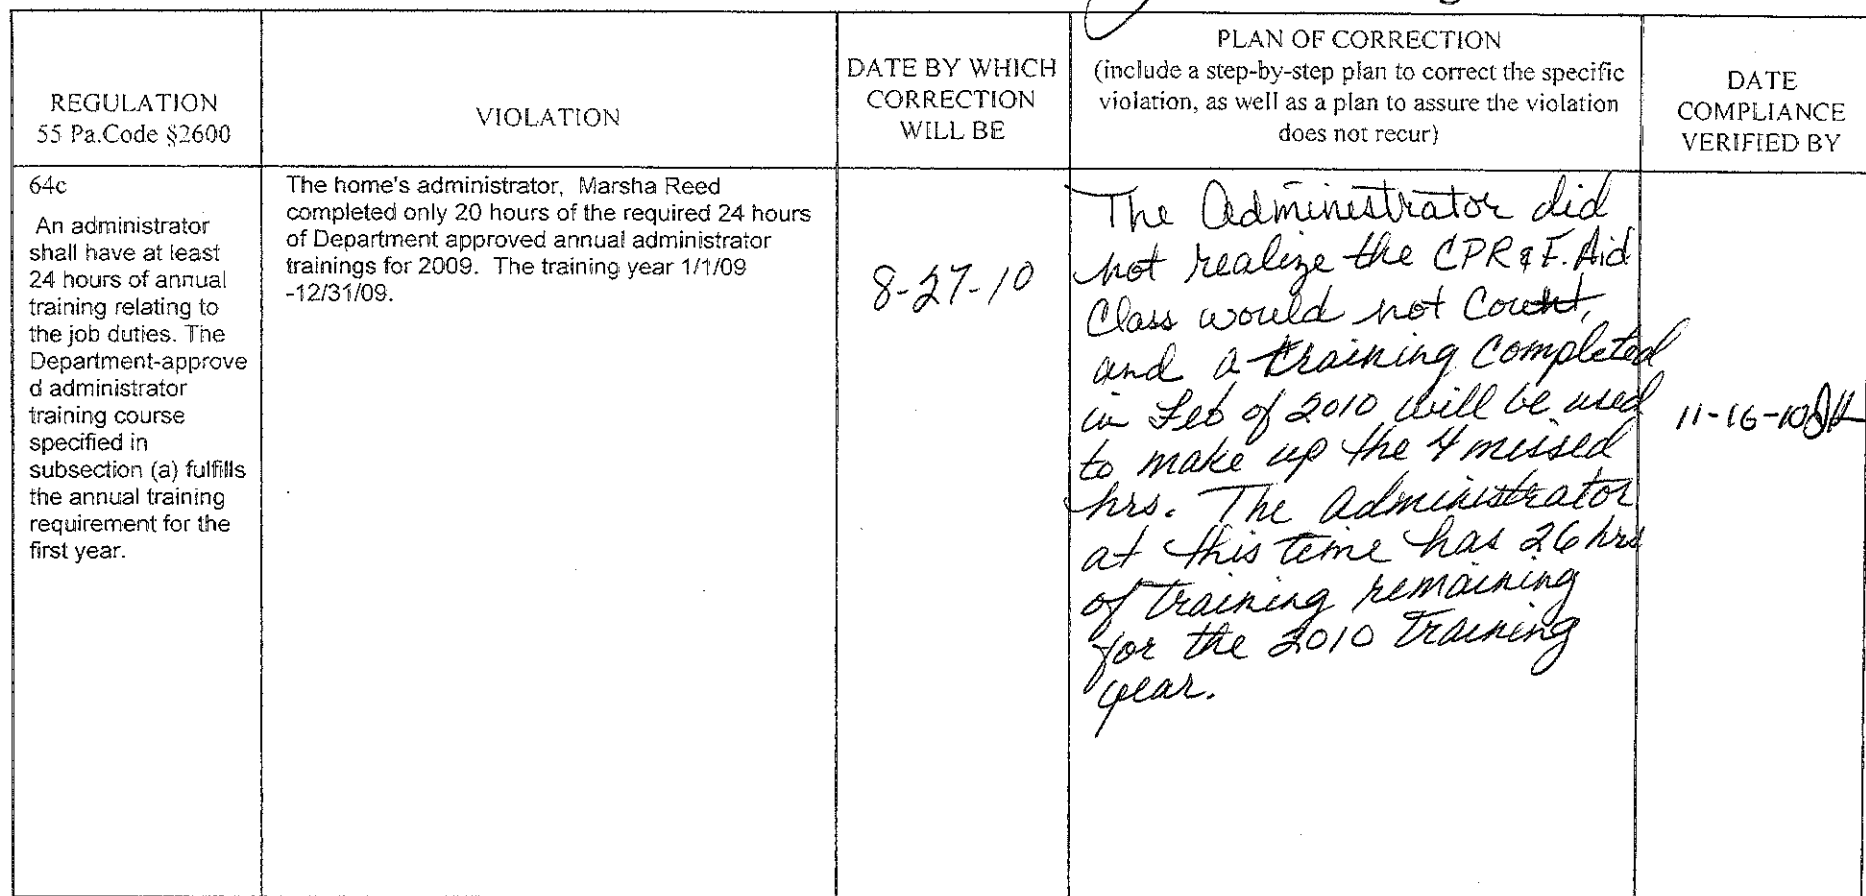 REGULATION
55 Pa.Code §2600
VIOLATION
DATE BY WHICH
CORRECTION
WILL BE
PLAN OF CORRECTION
(include a step-by-step plan to correct the specific
violation, as well as a plan to assure the violation
does not recur)
DATE
COMPLIANCE
VERIFIED BY
64c
An administrator
shall have at least
24 hours of annual
training relating to
the job duties. The
Department-approve
d administrator
training course
specified in
subsection (a) fulfills
the annual training
requirement for the
first year.
The home's administrator, Marsha Reed
completed only 20 hours of the required 24 hours
of Department approved annual administrator
trainings for 2009. The training year 1/1/09
-12/31/09.
8-27-10
The Administrator did
not realize the CPR & F. Aid
Class would not Count,
and a training Completed
in Feb of 2010 will be used
to make up the 4 missed
hrs. The administrator
at this time has 26 hrs
of training remaining
for the 2010 Training
year.
11-16-10